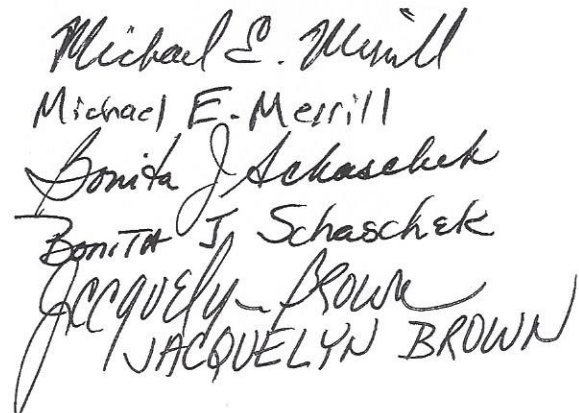 Michael E. Merrill
Michael E. Merrill
Bonita J. Schaschek
BoniTA J. Schaschek
Jacquelyn Brown
JACQUELYN BROWN